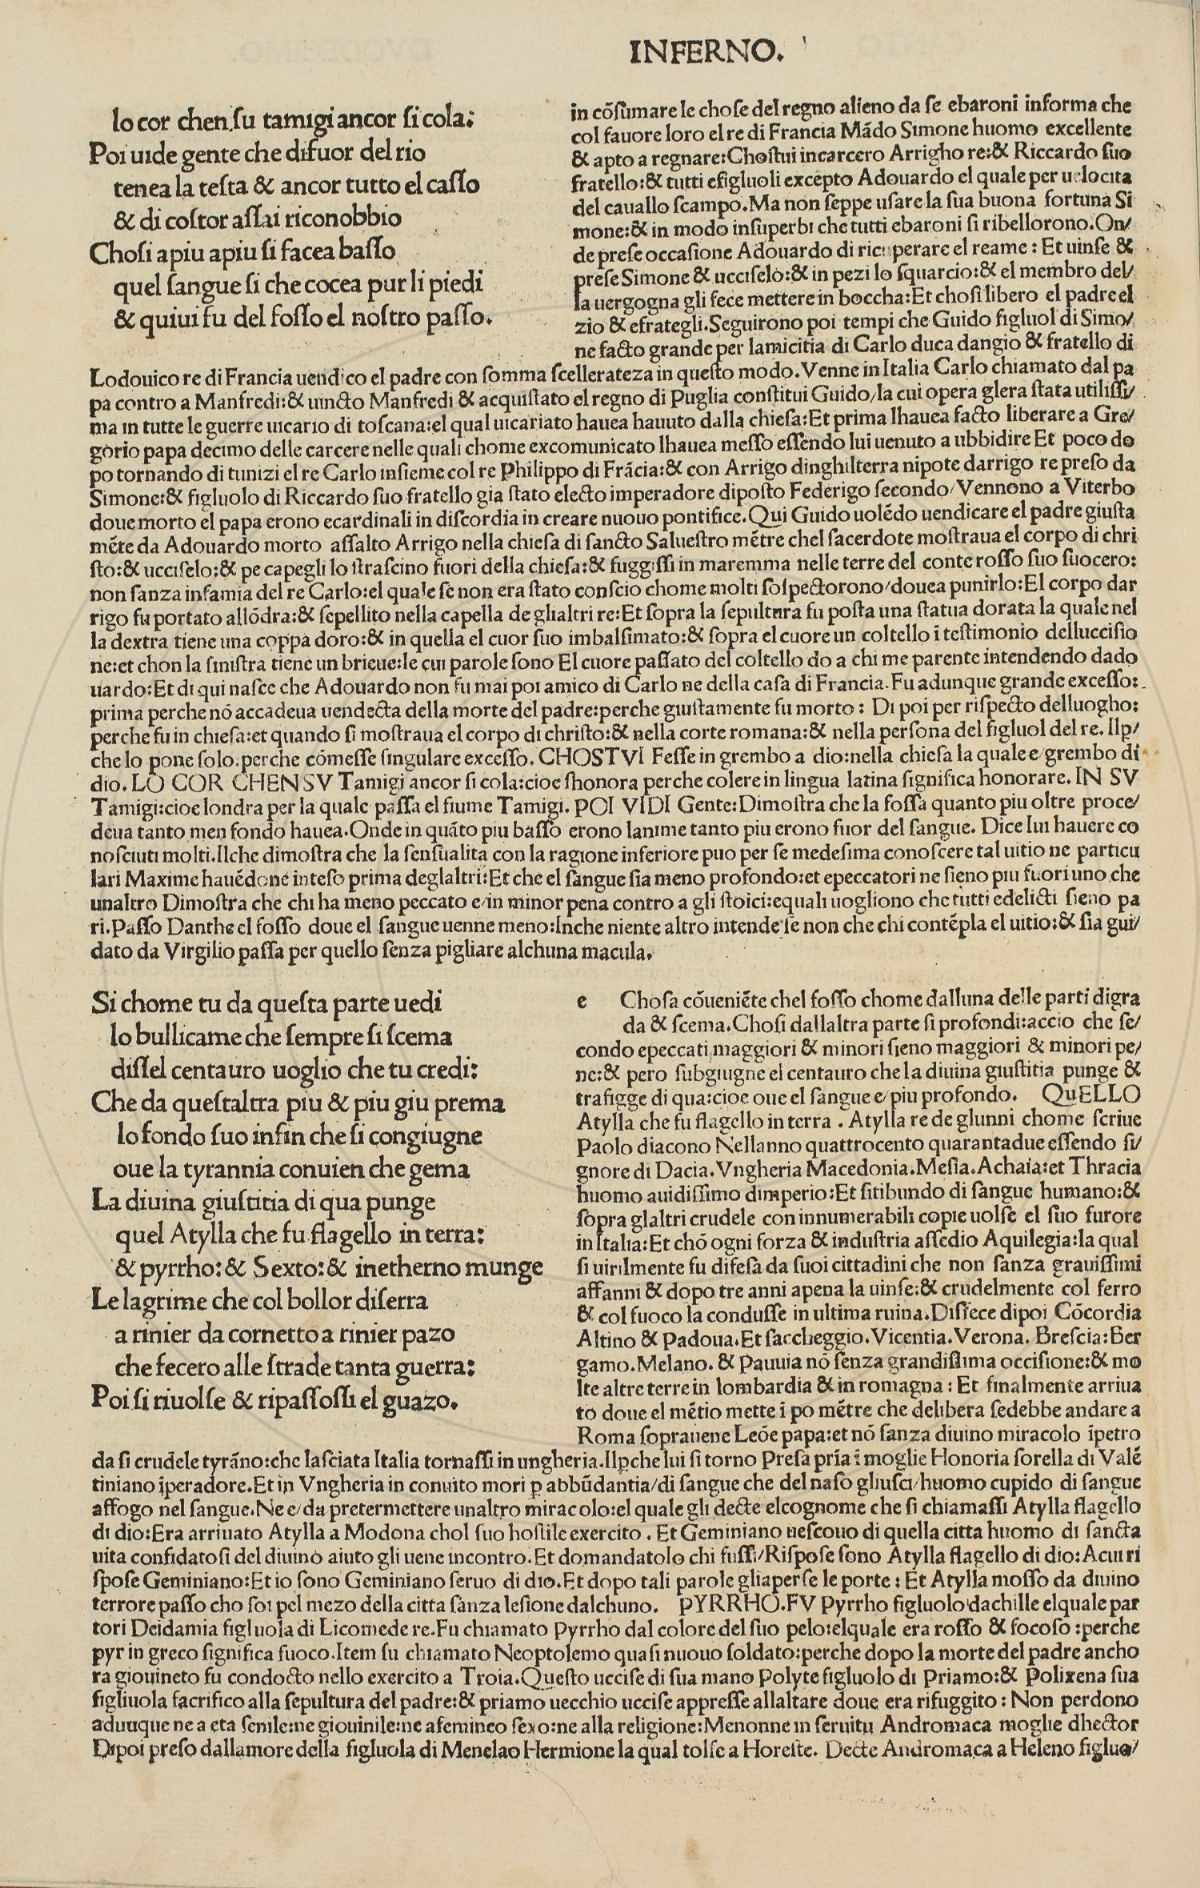 INFERNO.
lo cor chen su tamigi ancor si cola:
Poi uide gente che difuor del rio
tenea la testa & ancor tutto el casso
& di costor assai riconobbio
Chosi apiu apiu si facea basso
quel sangue si che cocea pur li piedi
& quiui fu del fosso el nostro passo.
in cōsumare le chose del regno alieno da se ebaroni informa che
col fauore loro el re di Francia Mādo Simone huomo excellente
& apto a regnare:Chostui incarcero Arrigho re:& Riccardo suo
fratello:& tutti efigluoli excepto Adouardo el quale per uelocita
del cauallo scampo.Ma non seppe usare la sua buona fortuna Si
mone:& in modo insuperbi che tutti ebaroni si ribellorono.On/
de prese occasione Adouardo di ricuperare el reame : Et uinse &
prese Simone & ucciselo:& in pezi lo squarcio:& el membro del/
la uergogna gli fece mettere in boccha:Et chosi libero el padre el
zio & efrategli.Seguirono poi tempi che Guido figluol di Simo/
ne facto grande per lamicitia di Carlo duca dangio & fratello di
Lodouico re di Francia uendico el padre con somma scellerateza in questo modo.Venne in Italia Carlo chiamato dal pa
pa contro a Manfredi:& uincto Manfredi & acquistato el regno di Puglia constitui Guido/la cui opera glera stata utilissi/
ma in tutte le guerre uicario di toscana:el qual uicariato hauea hauuto dalla chiesa:Et prima lhauea facto liberare a Gre/
gorio papa decimo delle carcere nelle quali chome excomunicato lhauea messo essendo lui uenuto a ubbidire Et poco do
po tornando di tunizi el re Carlo insieme col re Philippo di Frācia:& con Arrigo dinghilterra nipote darrigo re preso da
Simone:& figluolo di Riccardo suo fratello gia stato electo imperadore diposto Federigo secondo/Vennono a Viterbo
doue morto el papa erono ecardinali in discordia in creare nuouo pontifice.Qui Guido uolēdo uendicare el padre giusta
mēte da Adouardo morto assalto Arrigo nella chiesa di sancto Saluestro mētre chel sacerdote mostraua el corpo di chri
sto:& ucciselo:& pe capegli lo strascino fuori della chiesa:& fuggissi in maremma nelle terre del conte rosso suo suocero:
non sanza infamia del re Carlo:el quale se non era stato conscio chome molti sospectorono/douea punirlo:El corpo dar
rigo fu portato allōdra:& sepellito nella capella de glialtri re:Et sopra la sepultura fu posta una statua dorata la quale nel
la dextra tiene una coppa doro:& in quella el cuor suo imbalsimato:& sopra el cuore un coltello ī testimonio delluccisio
ne:et chon la sinistra tiene un brieue:le cui parole sono El cuore passato del coltello do a chi me parente intendendo dado
uardo:Et di qui nasce che Adouardo non fu mai poi amico di Carlo ne della casa di Francia.Fu adunque grande excesso:
prima perche nō accadeua uendecta della morte del padre:perche giustamente fu morto : Di poi per rispecto delluogho:
perche fu in chiesa:et quando si mostraua el corpo di christo:& nella corte romana:& nella persona del figluol del re. Ilp/
che lo pone solo.perche cōmesse singulare excesso. CHOSTVI Fesse in grembo a dio:nella chiesa la quale e/grembo di
dio. LO COR CHENSV Tamigi ancor si cola:cioe shonora perche colere in lingua latina significa honorare. IN SV
Tamigi:cioe londra per la quale passa el fiume Tamigi. POI VIDI Gente:Dimostra che la fossa quanto piu oltre proce/
deua tanto men fondo hauea.Onde in quāto piu basso erono lanime tanto piu erono fuor del sangue. Dice lui hauere co
nosciuti molti.Ilche dimostra che la sensualita con la ragione inferiore puo per se medesima conoscere tal uitio ne particu
lari Maxime hauēdone inteso prima deglaltri:Et che el sangue sia meno profondo:et epeccatori ne sieno piu fuori uno che
unaltro Dimostra che chi ha meno peccato e/in minor pena contro a gli stoici:equali uogliono che tutti edelicti sieno pa
ri.Passo Danthe el fosso doue el sangue uenne meno:Inche niente altro intende se non che chi contēpla el uitio:& sia gui/
dato da Virgilio passa per quello senza pigliare alchuna macula.
Si chome tu da questa parte uedi
lo bullicame che sempre si scema
dissel centauro uoglio che tu credi:
Che da questaltra piu & piu giu prema
lo fondo suo infin che si congiugne
oue la tyrannia conuien che gema
La diuina giustitia di qua punge
quel Atylla che fu flagello in terra:
& pyrrho:& Sexto:& inetherno munge
Le lagrime che col bollor diserra
a rinier da cornetto a rinier pazo
che fecero alle strade tanta guerra:
Poi si riuolse & ripassossi el guazo.
e Chosa cōueniēte chel fosso chome dalluna delle parti digra
da & scema.Chosi dallaltra parte si profondi:accio che se/
condo epeccati maggiori & minori sieno maggiori & minori pe/
ne:& pero subgiugne el centauro che la diuina giustitia punge &
trafigge di qua:cioe oue el sangue e/piu profondo. QuELLO
Atylla che fu flagello in terra . Atylla re de glunni chome scriue
Paolo diacono Nellanno quattrocento quarantadue essendo si/
gnore di Dacia.Vngheria Macedonia.Mesia.Achaia:et Thracia
huomo auidissimo dimperio:Et sitibundo di sangue humano:&
sopra glaltri crudele con innumerabili copie uolse el suo furore
in Italia:Et chō ogni forza & industria assedio Aquilegia:la qual
si uirilmente fu difesa da suoi cittadini che non sanza grauissimi
affanni & dopo tre anni apena la uinse:& crudelmente col ferro
& col fuoco la condusse in ultima ruina.Disfece dipoi Cōcordia
Altino & Padoua.Et saccheggio.Vicentia.Verona. Brescia:Ber
gamo.Melano. & Pauuia nō senza grandissima occisione:& mo
lte altre terre in lombardia & in romagna : Et finalmente arriua
to doue el mētio mette ī po mētre che delibera sedebbe andare a
Roma soprauene Leōe papa:et nō sanza diuino miracolo īpetro
da si crudele tyrāno:che lasciata Italia tornassi in ungheria.Ilpche lui si torno Presa pria ī moglie Honoria sorella di Valē
tiniano īperadore.Et in Vngheria in conuito mori p abbūdantia/di sangue che del naso gliusci/huomo cupido di sangue
affogo nel sangue.Ne e/da pretermettere unaltro miracolo:el quale gli decte elcognome che si chiamassi Atylla flagello
di dio:Era arriuato Atylla a Modona chol suo hostile exercito . Et Geminiano uescouo di quella citta huomo di sancta
uita confidatosi del diuino aiuto gli uene incontro.Et domandatolo chi fussi/Rispose sono Atylla flagello di dio:Acui ri
spose Geminiano:Et io sono Geminiano seruo di dio.Et dopo tali parole gliaperse le porte : Et Atylla mosso da diuino
terrore passo cho soi pel mezo della citta sanza lesione dalchuno. PYRRHO.FV Pyrrho figluolo dachille elquale par
tori Deidamia figluola di Licomede re.Fu chiamato Pyrrho dal colore del suo pelo:elquale era rosso & focoso :perche
pyr in greco significa fuoco.Item fu chiamato Neoptolemo quasi nuouo soldato:perche dopo la morte del padre ancho
ra giouineto fu condocto nello exercito a Troia.Questo uccise di sua mano Polyte figluolo di Priamo:& Polixena sua
figliuola sacrifico alla sepultura del padre:& priamo uecchio uccise appresse allaltare doue era rifuggito : Non perdono
aduuque ne a eta senile:ne giouinile:ne afemineo sexo:ne alla religione:Menonne in seruitu Andromaca moglie dhector
Dipoi preso dallamore della figluola di Menelao Hermione la qual tolse a Horeste. Decte Andromaca a Heleno figluo/